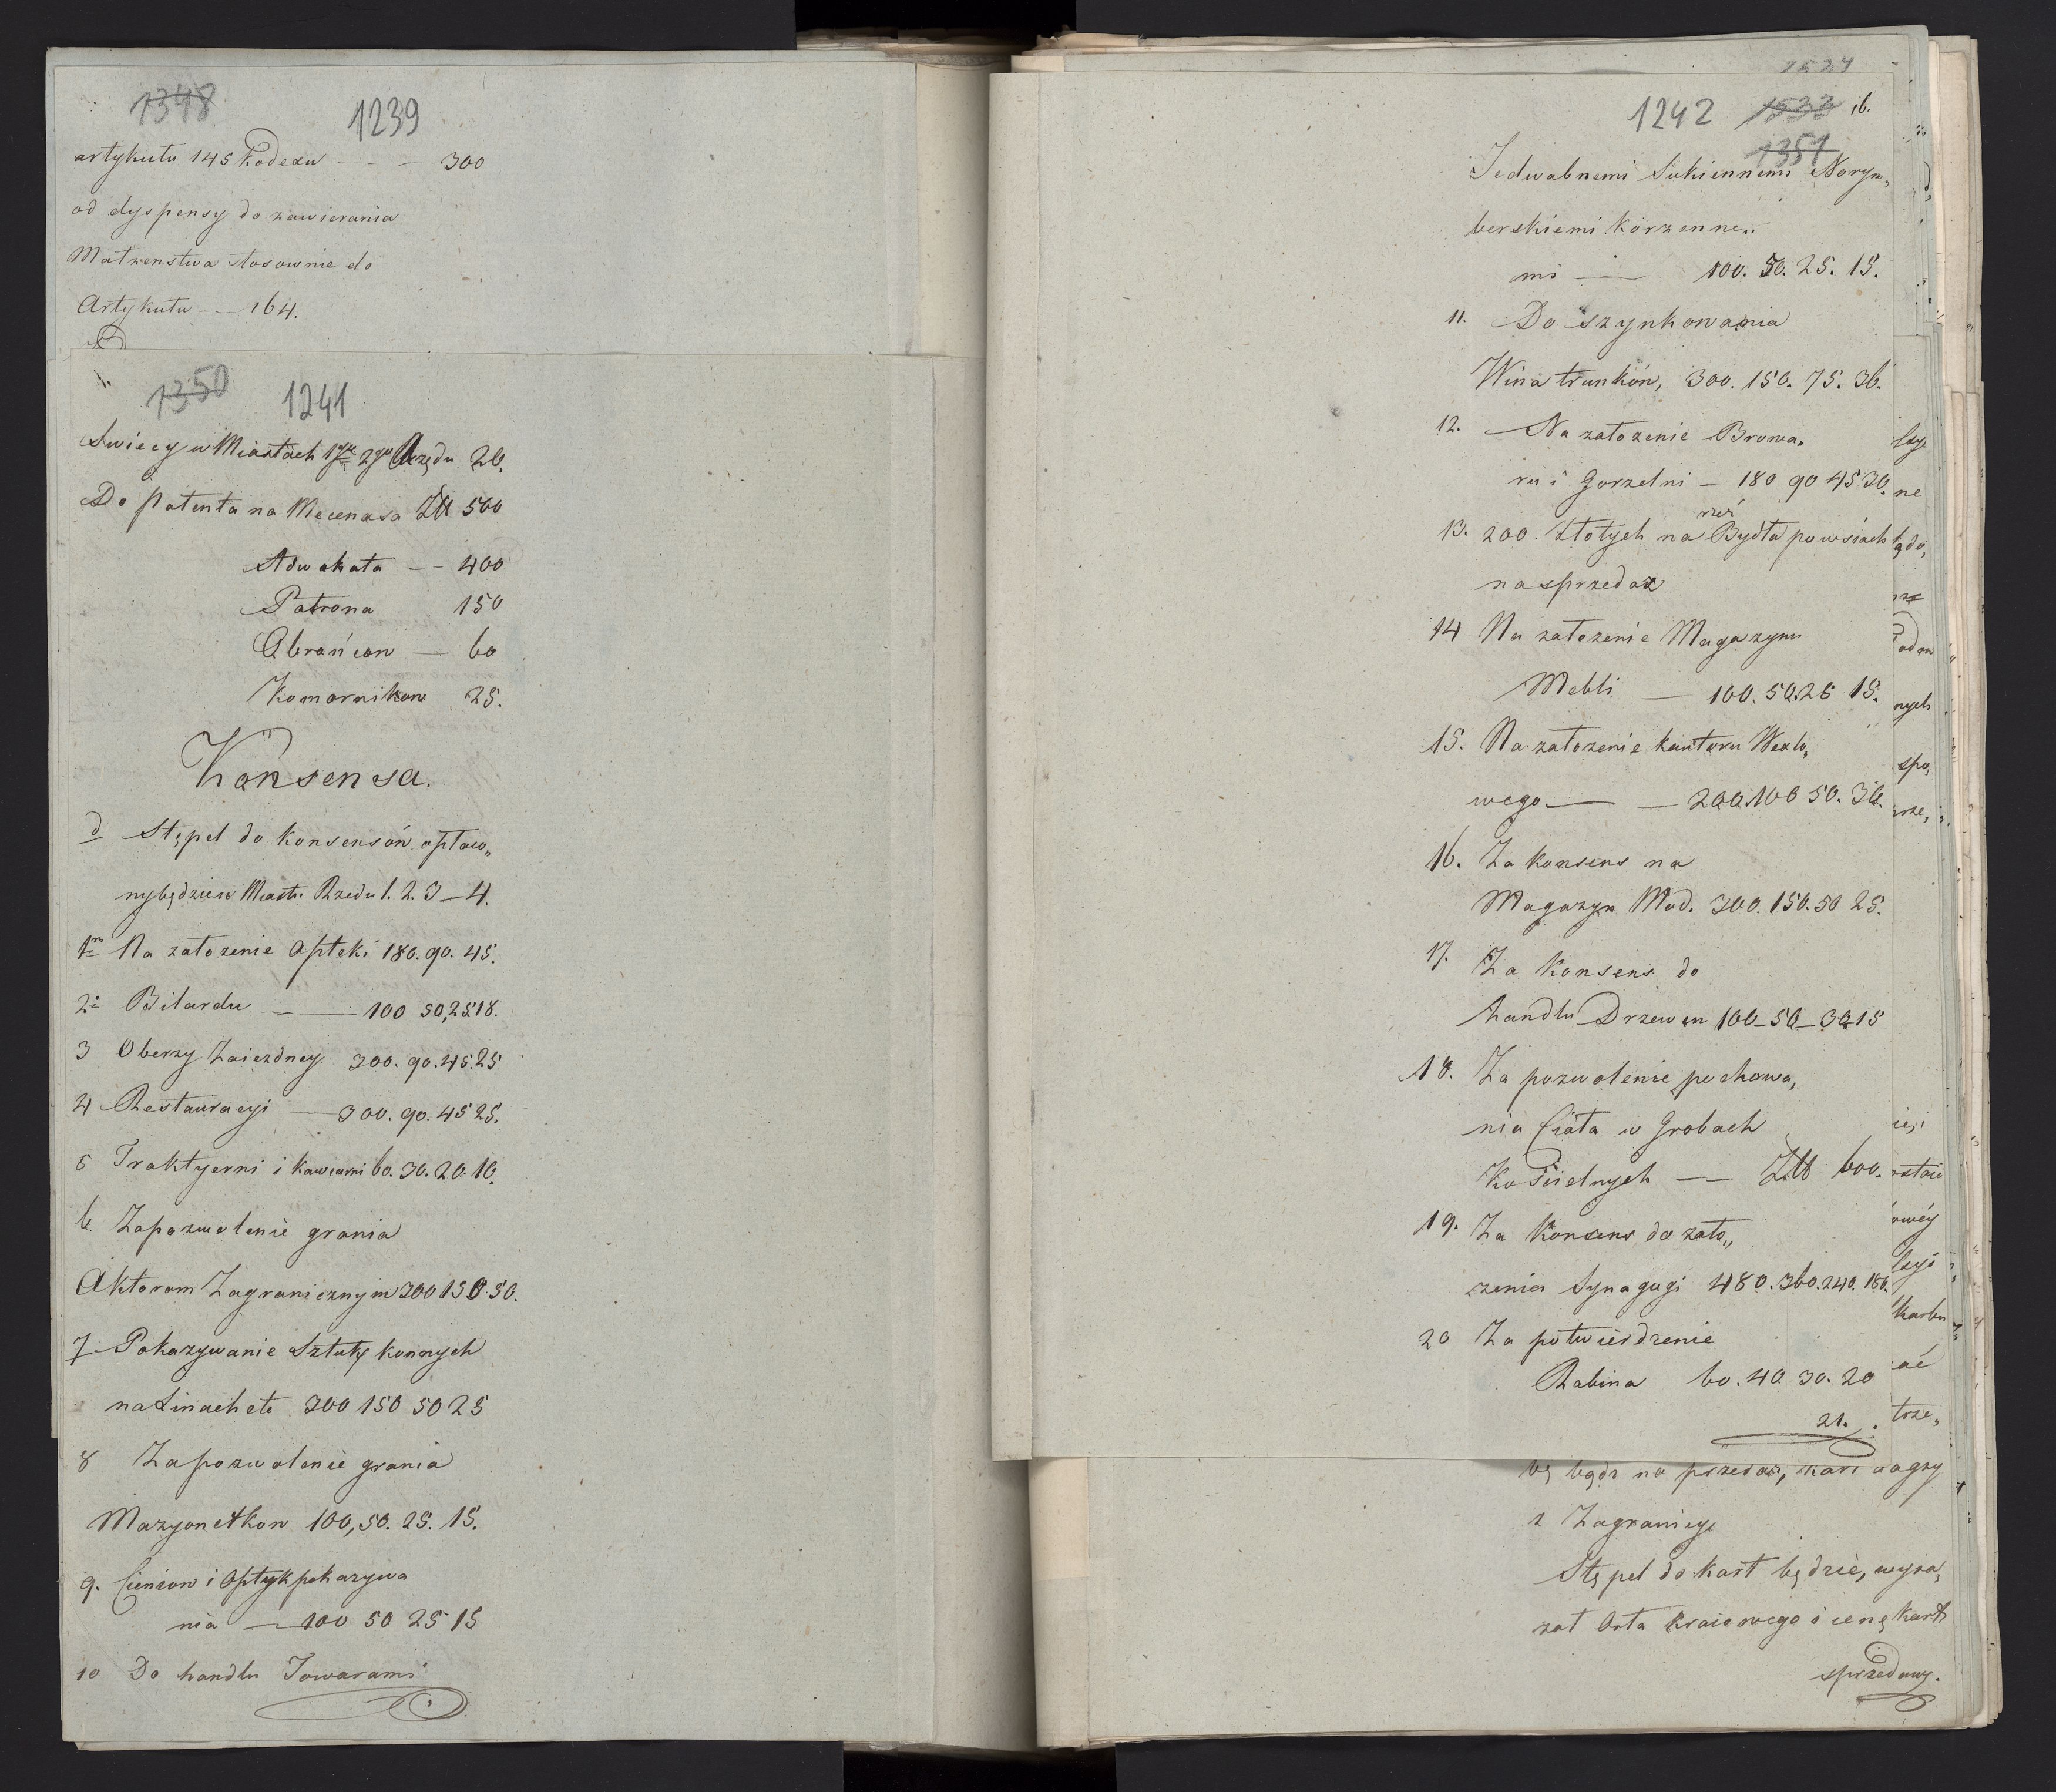 1348 1239
artykułu 145 Kodexu — — 300
od dyspensy do zawierania
Matzenstwa stosownie do
Artykułu — 164.
1350 1241
Swiecy w Miastach 1go 2go Rzędu 20.
Do Patenta na Mecenasa Zł 500
Adwokata — 400
Patrona 150
Obrońcow — 60
Komornikow 25.
Konsensa.
d Stępel do konsensów opłaco„
ny będzie w Miastu Rzedu 1. 2. 3 — 4.
1m Na założenie Apteki 180. 90. 45.
2: Bilardu — 100 50, 25. 18.
3 Oberzy Zaiezdney 300. 90. 45. 25
4 Restauracyi — 300. 90. 45 25.
5 Traktyerni i Kawiarni 60. 30. 20. 10.
6. Za pozwolenie grania
Aktorom Zagranicznym 300 150. 50.
7 Pokazywanie Sztuk konnych
na Linach etc 300 150 50 25
8 Za pozwolenie grania
Maryonetkow 100, 50. 25. 15.
9. Cieniow i Optyk pokazywa
nia — 100 50 25 15
10 Do handlu Towarami
1524
1242 1533 16.
1351
Jedwabnemi Sukiennemi Norym„
berskiemi korzenne„
mi — 100. 50. 25. 15.
11. Do szynkowania
Wina trunków, 300. 150. 75. 36.
12. Na załozenie Browa„
ru i Gorzelni — 180 90 45 30.
13. 200 Złotych na rzeź Bydła po wsiach
na sprzedaz
14 Na załozenie Magazynu
Mebli — 100. 50. 25 15.
15. Na załozenie kantoru Wexlo„
wego — — 200. 100 50. 30.
16. Za konsens na
Magazyn Mod. 300. 150. 50 25.
17. Za Konsens do
handlu Drzewem 100 — 50 — 30 15
18. Za pozwolenie pochowa„
nia Ciała w Grobach
Kościelnych — Zł 600.
19. Za Konsens do zało„
zenia Synagogi 480. 360. 240. 180.
20 Za potwierdzenie
Rabina 60. 40 30. 20
21.
ne
nych
spo„
owéy
ać
trze„
bę bądz na przedaż, kart
z Zagranicy
Stępel do kart będzie, wyra„
zał Orła kraiowego i cenę Kart
sprzedawy.